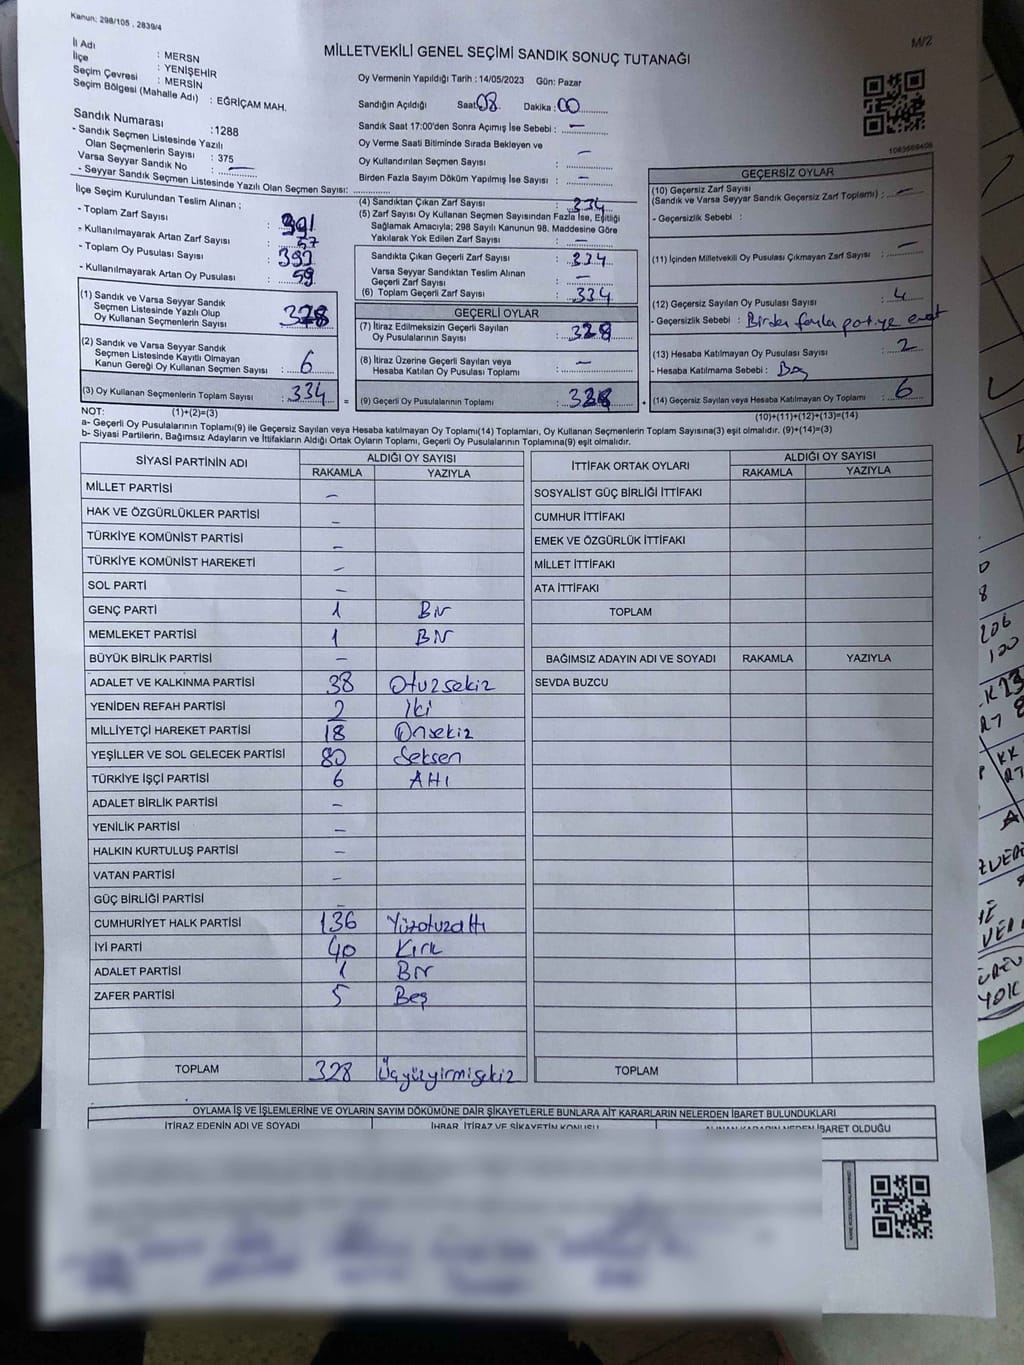 Kanun: 298/105 , 2839/4
M/2
MİLLETVEKİLİ GENEL SEÇİMİ SANDIK SONUÇ TUTANAĞI
İl Adı : MERSN
İlçe : YENİŞEHİR
Seçim Çevresi : MERSİN
Seçim Bölgesi (Mahalle Adı) : EĞRİÇAM MAH.
Oy Vermenin Yapıldığı Tarih : 14/05/2023 Gün: Pazar
Sandığın Açıldığı Saat: 08 Dakika: 00
Sandık Saat 17:00'den Sonra Açımış İse Sebebi : –
Oy Verme Saati Bitiminde Sırada Bekleyen ve
Oy Kullandırılan Seçmen Sayısı : –
Birden Fazla Sayım Döküm Yapılmış İse Sayısı : –
Sandık Numarası : 1288
- Sandık Seçmen Listesinde Yazılı
Olan Seçmenlerin Sayısı : 375
Varsa Seyyar Sandık No : –
- Seyyar Sandık Seçmen Listesinde Yazılı Olan Seçmen Sayısı:
İlçe Seçim Kurulundan Teslim Alınan ;
- Toplam Zarf Sayısı : 391
- Kullanılmayarak Artan Zarf Sayısı : 57
- Toplam Oy Pusulası Sayısı : 393
- Kullanılmayarak Artan Oy Pusulası : 59
(1) Sandık ve Varsa Seyyar Sandık
Seçmen Listesinde Yazılı Olup
Oy Kullanan Seçmenlerin Sayısı : 328
(2) Sandık ve Varsa Seyyar Sandık
Seçmen Listesinde Kayıtlı Olmayan
Kanun Gereği Oy Kullanan Seçmen Sayısı : 6
(3) Oy Kullanan Seçmenlerin Toplam Sayısı : 334
(4) Sandıktan Çıkan Zarf Sayısı : 334
(5) Zarf Sayısı Oy Kullanan Seçmen Sayısından Fazla İse, Eşitliği
Sağlamak Amacıyla; 298 Sayılı Kanunun 98. Maddesine Göre
Yakılarak Yok Edilen Zarf Sayısı : –
Sandıkta Çıkan Geçerli Zarf Sayısı : 334
Varsa Seyyar Sandıktan Teslim Alınan
Geçerli Zarf Sayısı : –
(6) Toplam Geçerli Zarf Sayısı : 334
GEÇERLİ OYLAR
(7) İtiraz Edilmeksizin Geçerli Sayılan
Oy Pusulalarının Sayısı : 328
(8) İtiraz Üzerine Geçerli Sayılan veya
Hesaba Katılan Oy Pusulası Toplamı : –
= (9) Geçerli Oy Pusulalarının Toplamı : 328
GEÇERSİZ OYLAR
(10) Geçersiz Zarf Sayısı
(Sandık ve Varsa Seyyar Sandık Geçersiz Zarf Toplamı) : –
- Geçersizlik Sebebi :
(11) İçinden Milletvekili Oy Pusulası Çıkmayan Zarf Sayısı : –
(12) Geçersiz Sayılan Oy Pusulası Sayısı : 4
- Geçersizlik Sebebi : Birden fazla partiye evet
(13) Hesaba Katılmayan Oy Pusulası Sayısı : 2
- Hesaba Katılmama Sebebi : Boş
(14) Geçersiz Sayılan veya Hesaba Katılmayan Oy Toplamı : 6
NOT: (1)+(2)=(3)
(10)+(11)+(12)+(13)=(14)
a- Geçerli Oy Pusulalarının Toplamı(9) ile Geçersiz Sayılan veya Hesaba katılmayan Oy Toplamı(14) Toplamları, Oy Kullanan Seçmenlerin Toplam Sayısına(3) eşit olmalıdır. (9)+(14)=(3)
b- Siyasi Partilerin, Bağımsız Adayların ve İttifakların Aldığı Ortak Oyların Toplamı, Geçerli Oy Pusulalarının Toplamına(9) eşit olmalıdır.
SİYASİ PARTİNİN ADI ALDIĞI OY SAYISI
RAKAMLA YAZIYLA
MİLLET PARTİSİ –
HAK VE ÖZGÜRLÜKLER PARTİSİ –
TÜRKİYE KOMÜNİST PARTİSİ –
TÜRKİYE KOMÜNİST HAREKETİ –
SOL PARTİ –
GENÇ PARTİ 1 Bir
MEMLEKET PARTİSİ 1 Bir
BÜYÜK BİRLİK PARTİSİ –
ADALET VE KALKINMA PARTİSİ 38 Otuzsekiz
YENİDEN REFAH PARTİSİ 2 İki
MİLLİYETÇİ HAREKET PARTİSİ 18 Onsekiz
YEŞİLLER VE SOL GELECEK PARTİSİ 80 Seksen
TÜRKİYE İŞÇİ PARTİSİ 6 Altı
ADALET BİRLİK PARTİSİ –
YENİLİK PARTİSİ –
HALKIN KURTULUŞ PARTİSİ –
VATAN PARTİSİ –
GÜÇ BİRLİĞİ PARTİSİ –
CUMHURİYET HALK PARTİSİ 136 Yüzotuzaltı
İYİ PARTİ 40 Kırk
ADALET PARTİSİ 1 Bir
ZAFER PARTİSİ 5 Beş
TOPLAM 328 Üçyüzyirmisekiz
İTTİFAK ORTAK OYLARI ALDIĞI OY SAYISI
RAKAMLA YAZIYLA
SOSYALİST GÜÇ BİRLİĞİ İTTİFAKI
CUMHUR İTTİFAKI
EMEK VE ÖZGÜRLÜK İTTİFAKI
MİLLET İTTİFAKI
ATA İTTİFAKI
TOPLAM
BAĞIMSIZ ADAYIN ADI VE SOYADI RAKAMLA YAZIYLA
SEVDA BUZCU
TOPLAM
OYLAMA İŞ VE İŞLEMLERİNE VE OYLARIN SAYIM DÖKÜMÜNE DAİR ŞİKAYETLERLE BUNLARA AİT KARARLARIN NELERDEN İBARET BULUNDUKLARI
İTİRAZ EDENİN ADI VE SOYADI İHBAR, İTİRAZ VE ŞİKAYETİN KONUSU ALINAN KARARIN NEDEN İBARET OLDUĞU
206
100
YOK